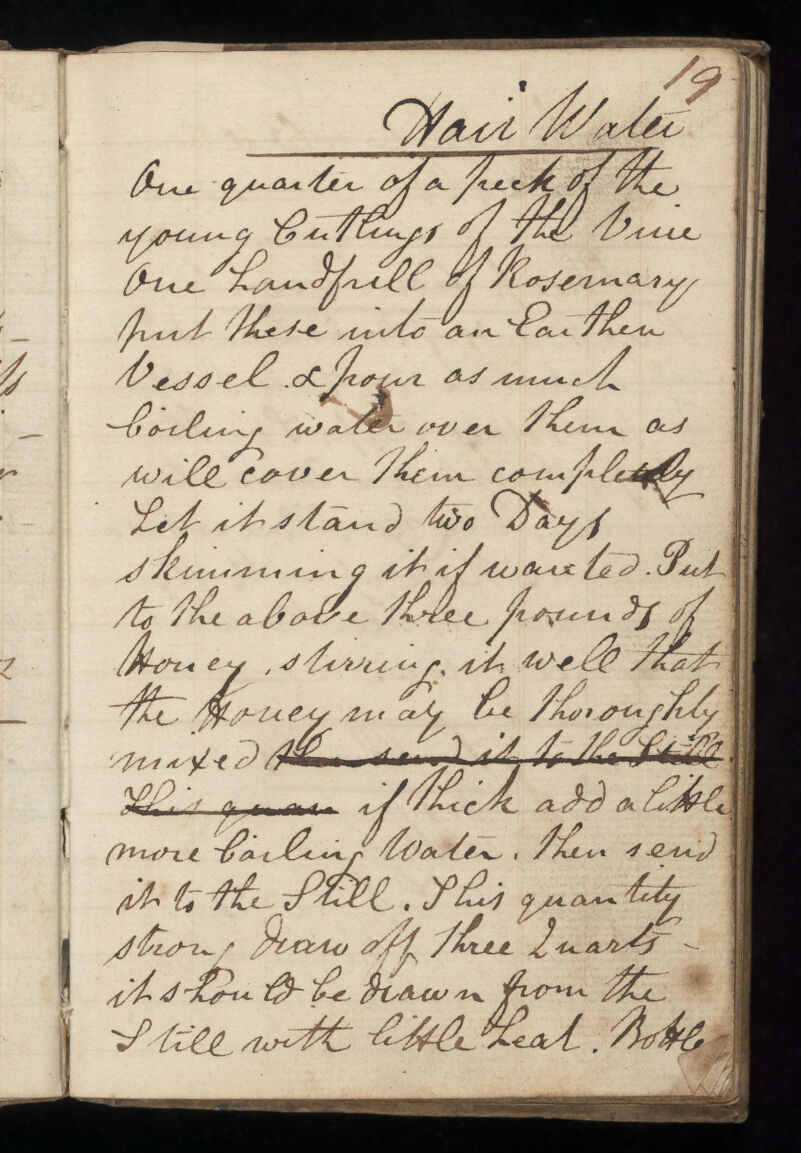 19
Hair Water
One quarter of a peck of the
young Cuttings of the Vine
One handfull of Rosemary
put these into an Earthen
Vessel & pour as much
boiling water over them as
will cover them completely
Let it stand two Days
skimming it if wanted. Put
to the above three pounds of
Honey, stirring it well that
the Honey may be thoroughly
mixed then send it to the Still
This quan if thick add a little
more boiling Water. then send
it to the Still. This quantity
strong draw off three Quarts -
it should be drawn from the
Still with little heat. Bottle